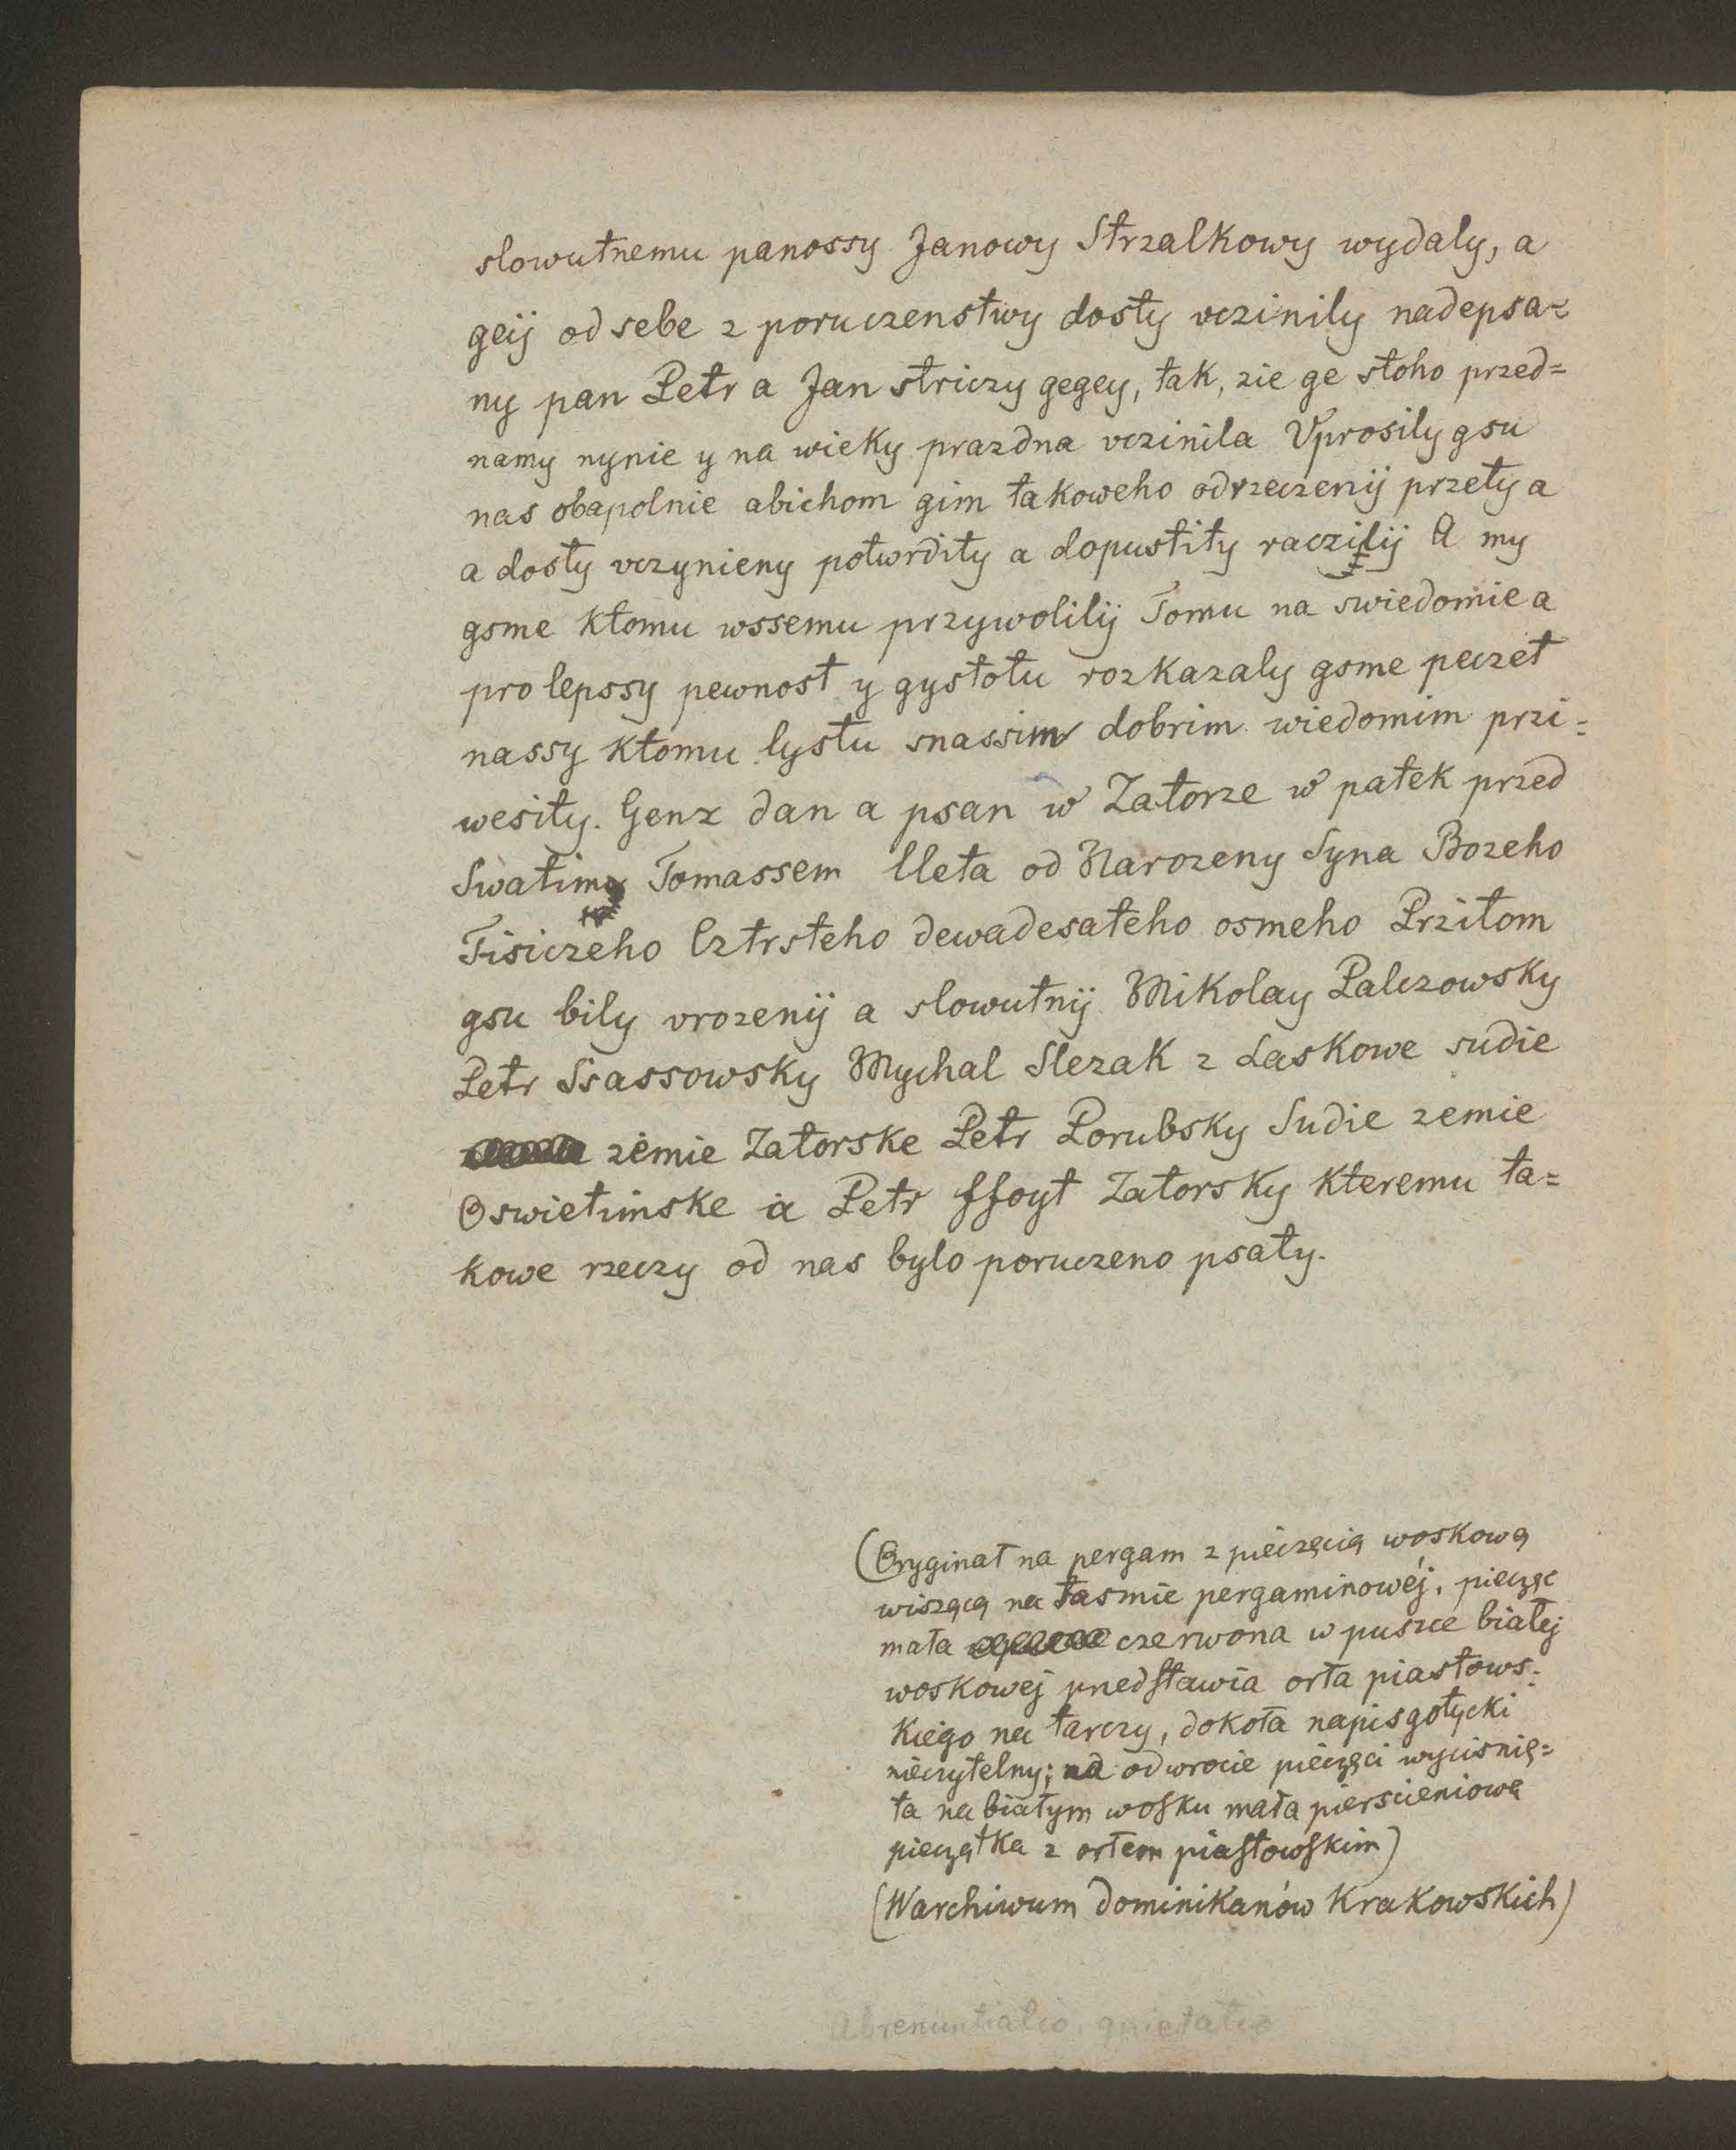 slowutnemu panossy Janowy Strzalkowy wydaly, a
geij od sebe z poruczenstwy dosty vczinily nadepsa=
ny pan Petr a Jan striczy gegey, tak, zie ge stoho przed=
namy nynie y na wieky prazdna vczinila Vprosily gsu
nas obapolnie abichom gim takoweho odrzeczenij przety a
a dosty vczynieny potwrdity a dopustity raczilij A my
gsme ktomu wssemu przywolilij Tomu na swiedomie a
pro lepssy pewnost y gystotu rozkazaly gsme peczet
nassy ktomu lystu snassim dobrim wiedomim przi=
wesity. Genz dan a psan w Zatorze w patek przed
Swatim Tomassem lleta od Narozeny Syna Bozeho
Tisiczeho Cztrsteho dewadesateho osmeho Przitom
gsu bily vrozenij a slowutnij Mikolay Palczowsky
Petr Ssassowsky Mychal Slezak z Laskowe sudie
zemie Zatorske Petr Porubsky Sudie zemie
Oswietimske a Petr ffoyt Zatorsky kteremu ta=
kowe rzeczy od nas bylo poruczeno psaty.
(Oryginał na pergam z pieczęcią woskową
wiszącą na tasmie pergaminowéj, pieczęc
mała czerwona w puszce białej
woskowej przedstawia orła piastows=
kiego na tarczy, dokoła napis gotycki
nieczytelny; na odwrocie pieczęci wycisnię=
ta na białym wosku mała pierscieniowa
pieczątka z orłem piastowskim)
(W archiwum dominikanów Krakowskich)
Abrenuntiatio, quietatio